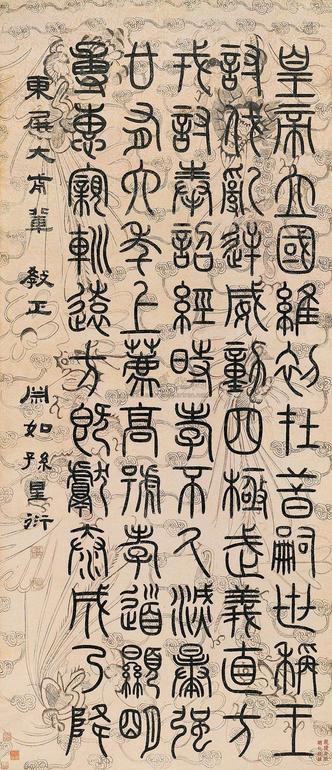 皇帝立國維初在昔嗣世稱王
討伐亂逆威動四極武義直方
戎奉詔經時不久滅暴強
廿有六年上薦高號孝道顯明
專惠親巡遠方既獻泰成乃降
東屏大前輩 教正 淵如孫星衍